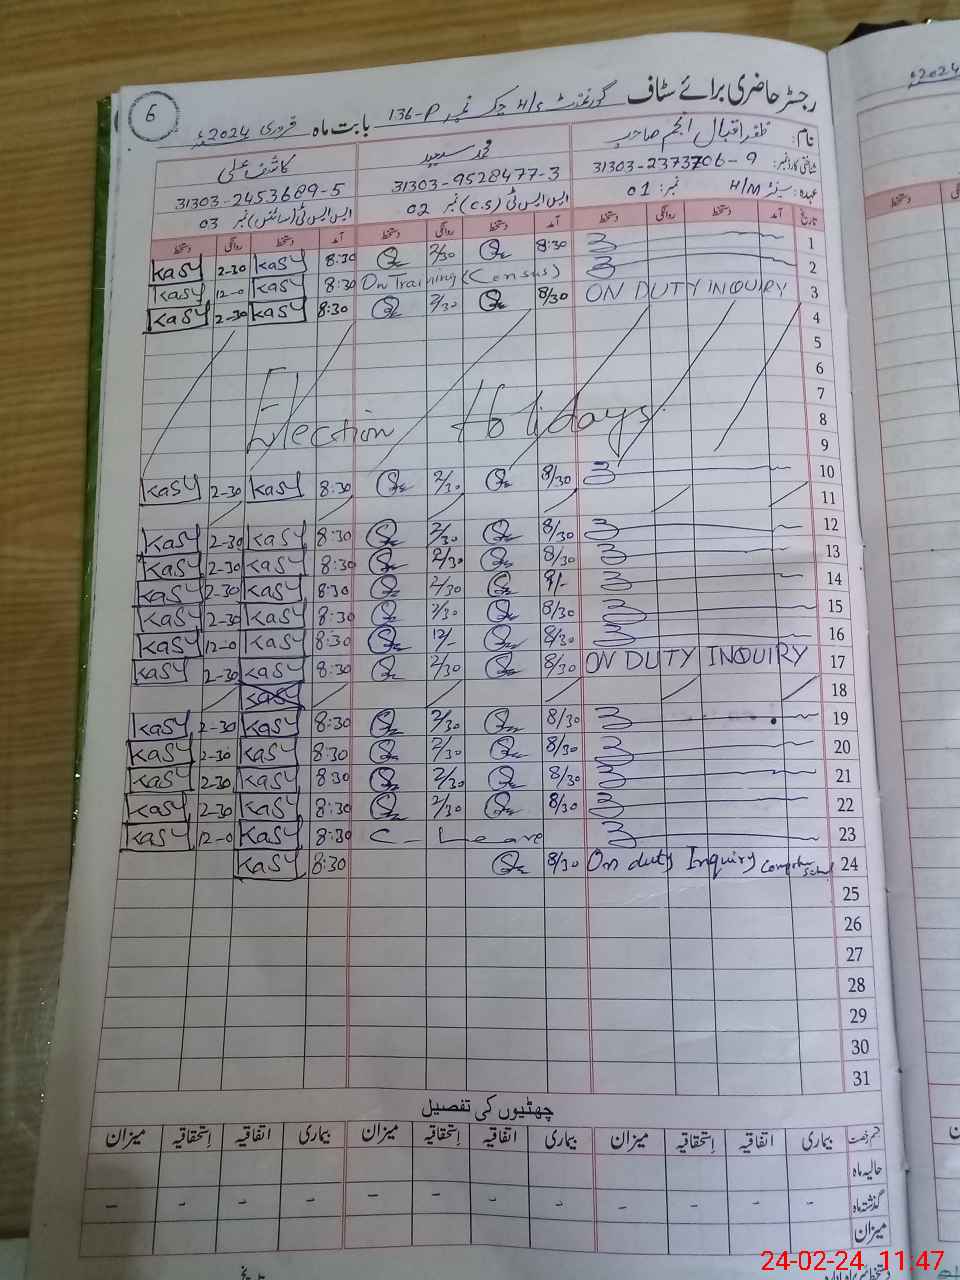 6
رجسٹر حاضری برائے سٹاف گورنمنٹ H/S چک نمبر 136-P بابت ماہ فروری 2024ء
نام: ظفر اقبال انجم صاحب محمد سعید کاشف علی
شناختی کارڈ نمبر: 31303-2373706-9 31303-9528477-3 31303-2453689-5
عہدہ: سینئر H/M نمبر: 01 ایس ایس ٹی (C.S) نمبر 02 ایس ایس ٹی (سائنس) نمبر 03
تاریخ آمد دستخط روانگی دستخط آمد دستخط روانگی دستخط آمد دستخط روانگی دستخط
1 8:30 2/30 8:30 KaSY 2-30 KaSY
2 On Training (Census) 8:30 KaSY 12-0 KaSY
3 ON DUTY INQUIRY 8/30 2/30 8:30 KaSY 2-30 KaSY
4
5
6
7
8 Election Holidays
9
10 8/30 2/30 8:30 KaSY 2-30 KaSY
11
12 8/30 2/30 8:30 KaSY 2-30 KaSY
13 8/30 2/30 8:30 KaSY 2-30 KaSY
14 9/- 2/30 8:30 KaSY 2-30 KaSY
15 8/30 2/30 8:30 KaSY 2-30 KaSY
16 8/30 12/- 8:30 KaSY 12-0 KaSY
17 ON DUTY INQUIRY 8/30 2/30 8:30 KaSY 2-30 KaSY
18 KaSY
19 8/30 2/30 8:30 KaSY 2-30 KaSY
20 8/30 2/30 8:30 KaSY 2-30 KaSY
21 8/30 2/30 8:30 KaSY 2-30 KaSY
22 8/30 2/30 8:30 KaSY 2-30 KaSY
23 C-Leave 8:30 KaSY 12-0 KaSY
24 On duty Inquiry 8/30 8:30 KaSY
25
26
27
28
29
30
31
چھٹیوں کی تفصیل
قسم رخصت بیماری اتفاقیہ استحقاقیہ میزان بیماری اتفاقیہ استحقاقیہ میزان بیماری اتفاقیہ استحقاقیہ میزان
حالیہ ماہ
گذشتہ ماہ - - - - - - - - - - - -
میزان
دستخط سربراہ ادارہ
2024ء
دستخط
24-02-24 11:47